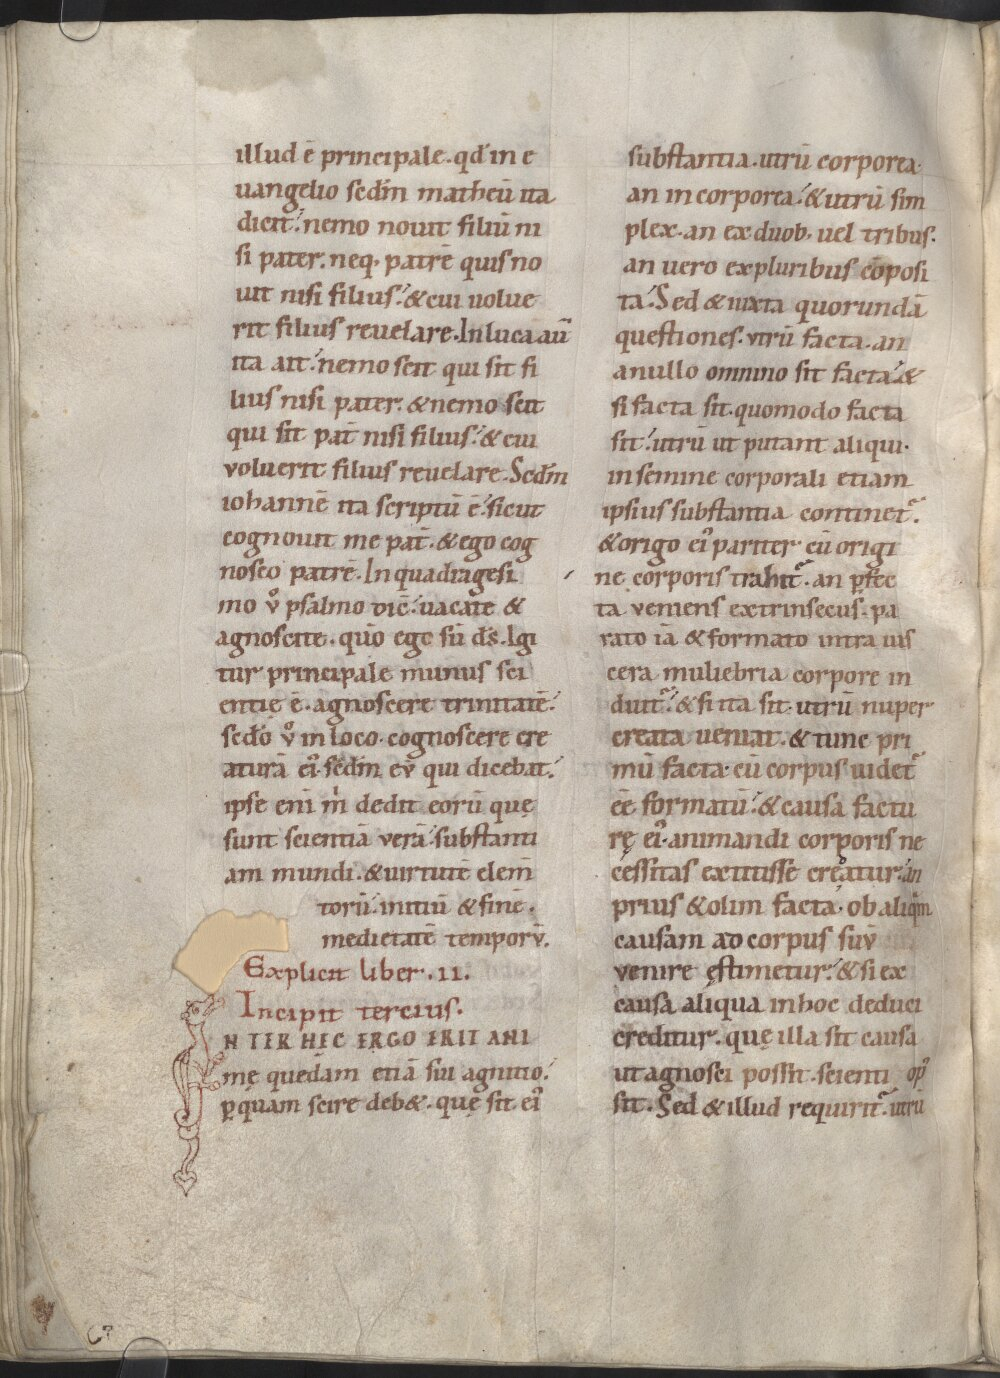 illud ē principale. qd́ in e
uangelio sedm̄ matheū ita
dicit: nemo nouit filiū ni
si pater. neq; patrē quis no
uit nisi filius: & cui uolue
rit filius reuelare. In luca aū
ita ait: nemo scit qui sit fi
lius nisi pater. & nemo scit
qui sit pat̄ nisi filius: & cui
voluerit filius reuelare. Sedm̄
iohannē ita scriptū ē: sicut
cognouit me pat̄. & ego cog
nosco patrē. In quadragesi
mo v̊ psalmo dic̄: uacate &
agnoscite. quō ego sū d̄s. Igi
tur principale munus sci
entię ē. agnoscere trinitatē:
scd̄o v̊ in loco. cognoscere cre
aturā ei᷒. sedm̄ eū qui dicebat:
ipse eni m̍ dedit eorū quę
sunt scientiā verā: substanti
am mundi. & uirtutē elem̄
torū: initiū & finē.
medietatē temporū.
Explicit liber .II.
Incipit tercius.
N TER HEC ERGO ERIT ANI
mę quedam etiā sui agnitio:
p̲quam scire deb&. quę sit ei᷒
substantia. utrū corporea.
an in corporea: & utrū sim
plex. an ex duob; uel tribus.
an uero ex pluribus cōposi
ta: Sed & iuxta quorundā
questiones. vtrū facta. an
a nullo omnino sit facta: &
si facta sit. quomodo facta
sit: utrū ut putant aliqui.
in semine corporali etiam
ipsius substantia continet᷑.
& origo ei᷒ pariter cū origi
ne corporis trahit᷑. an p̲fec
ta veniens extrinsecus. pa
rato iā & formato intra uis
cera muliebria corpore in
duit᷑: & si ita sit. utrū nuper
creata ueniat. & tunc pri
mū facta. cū corpus uidet᷑
eē formatū: & causa factu
rę ei᷒. animandi corporis ne
cessitas extitisse creatur: an
prius & olim facta. ob aliqm̄
causam ad corpus suū
venire ęstimetur: & si ex
causa aliqua in hoc deduci
creditur. quę illa sit causa
ut agnosci possit. scienti op᷒
sit. Sed & illud requirit᷑. utrū